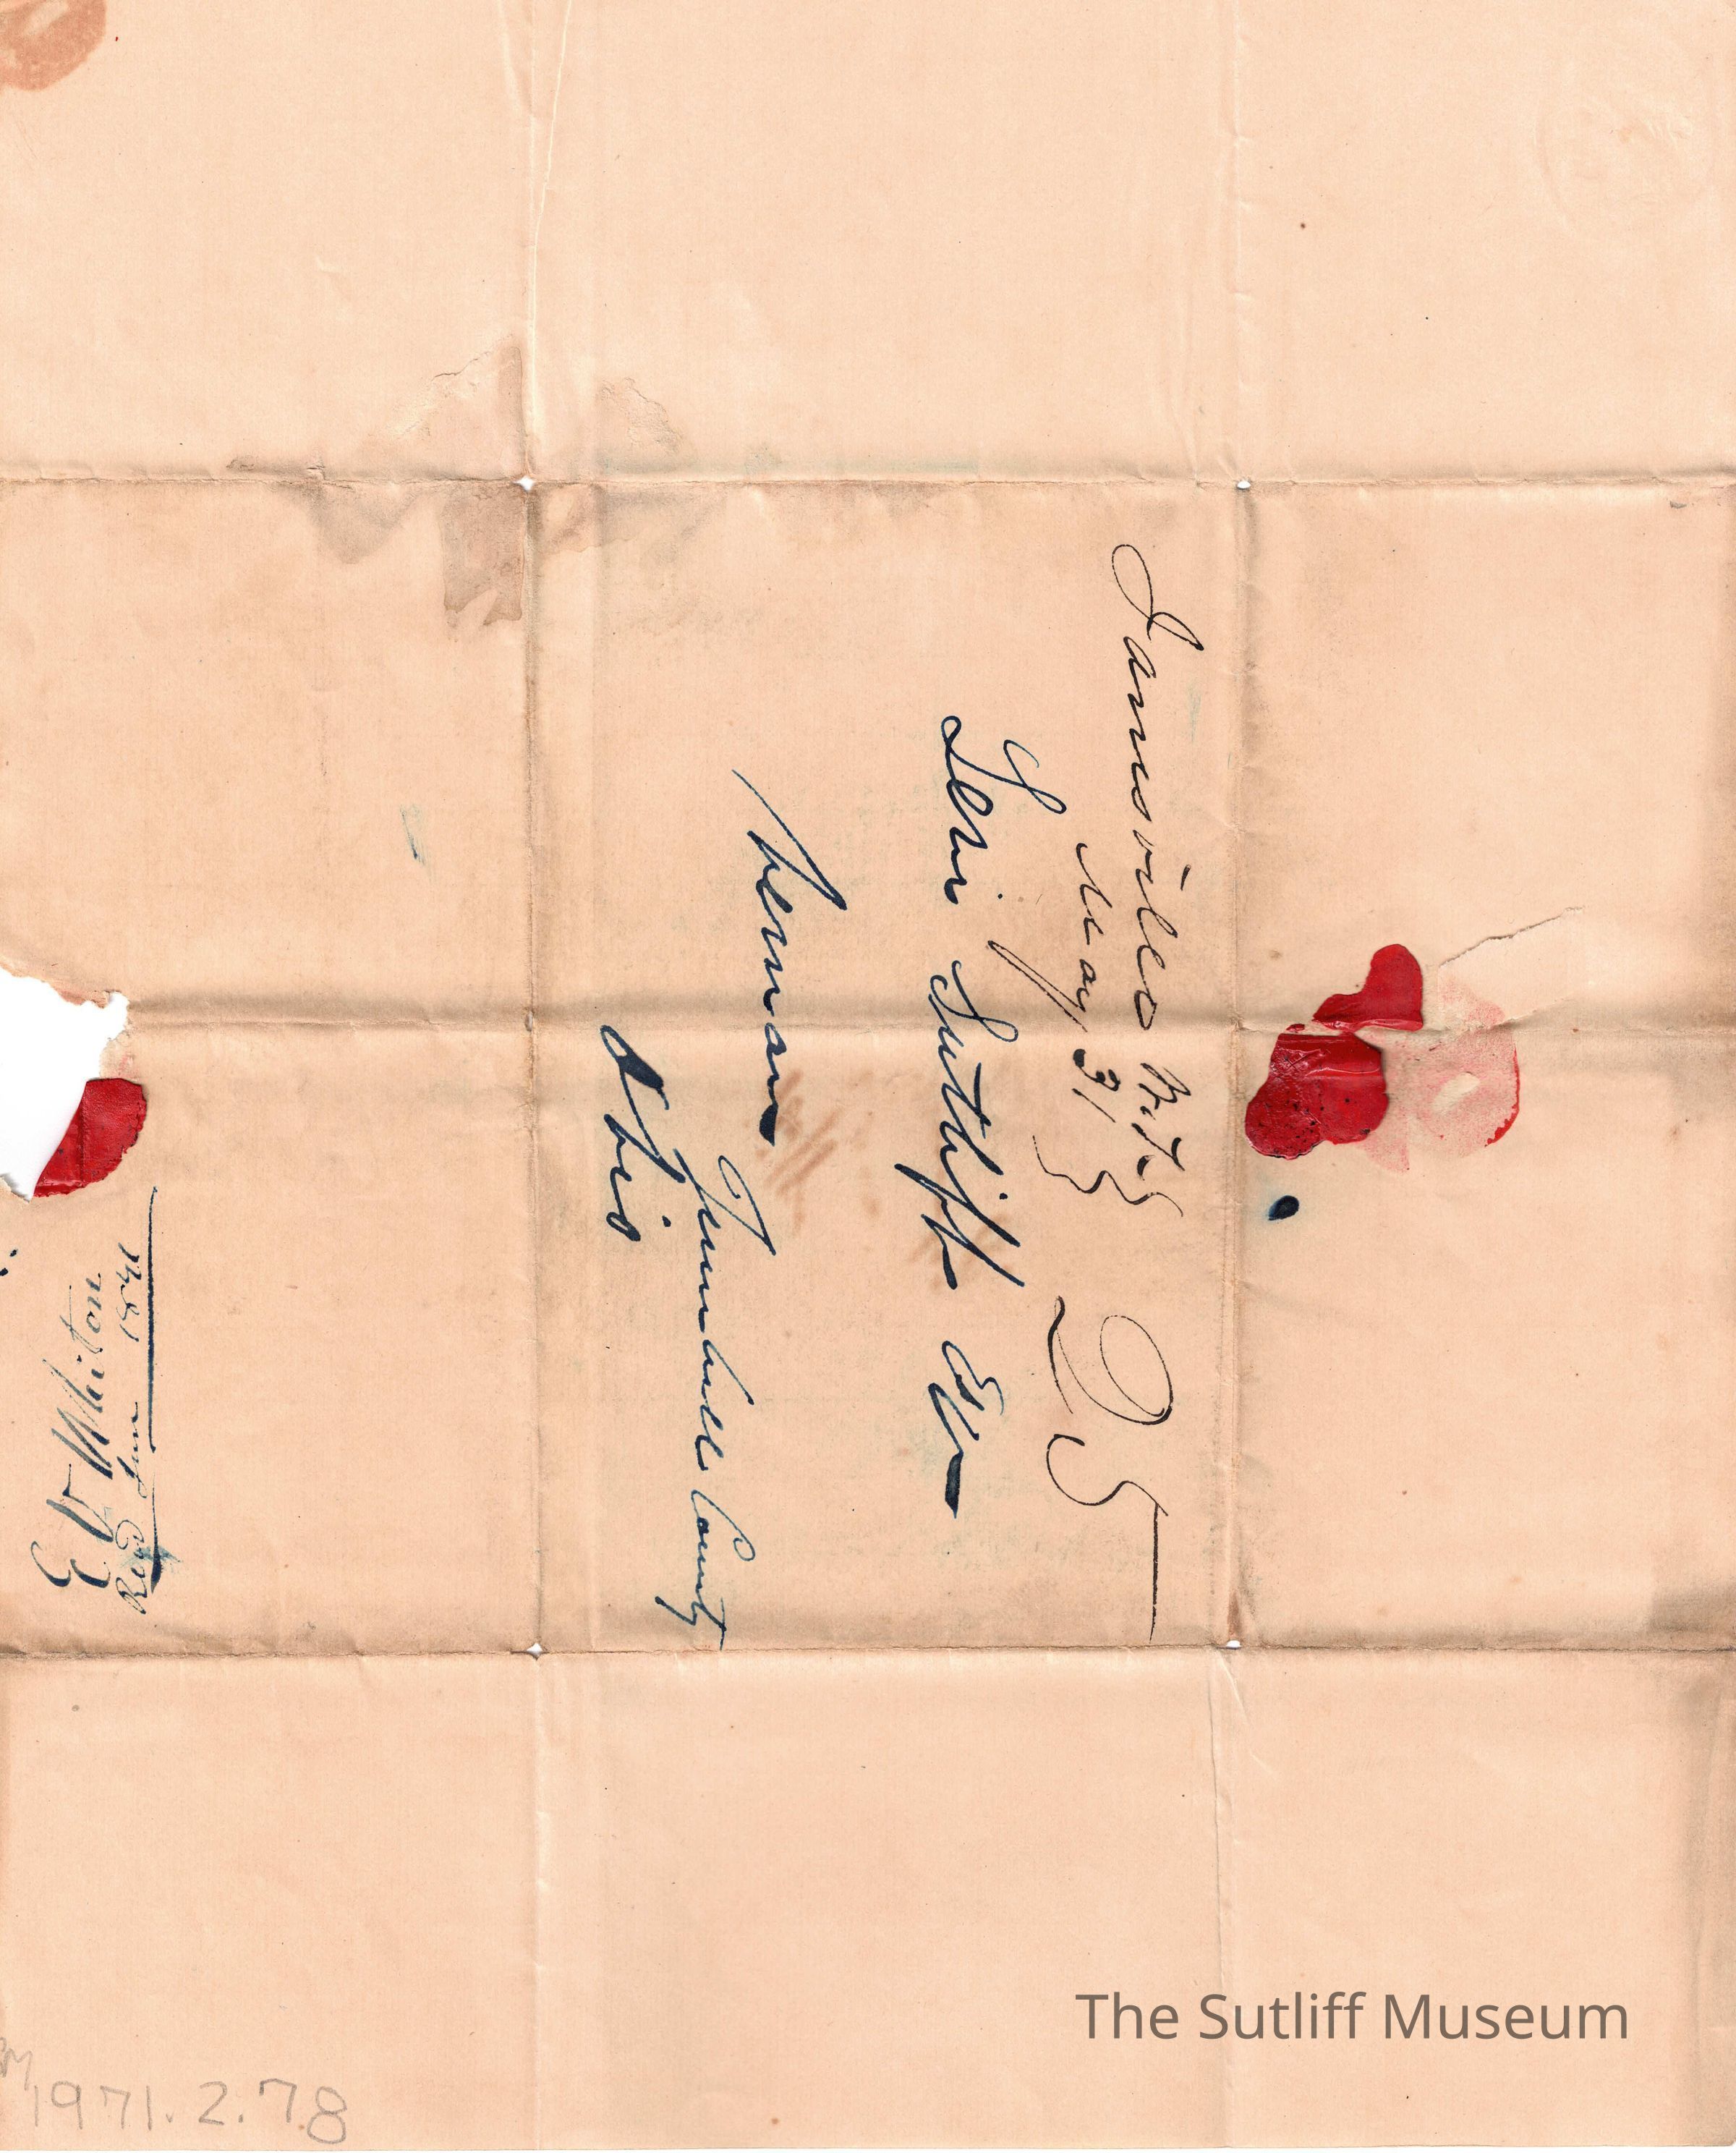 Janesville W.T.
May 31
25
Levi Sutliff Esq
Vernan
Trumbull County
Ohio
E V Whiton
Recd June 1841
1971.2.78
The Sutliff Museum